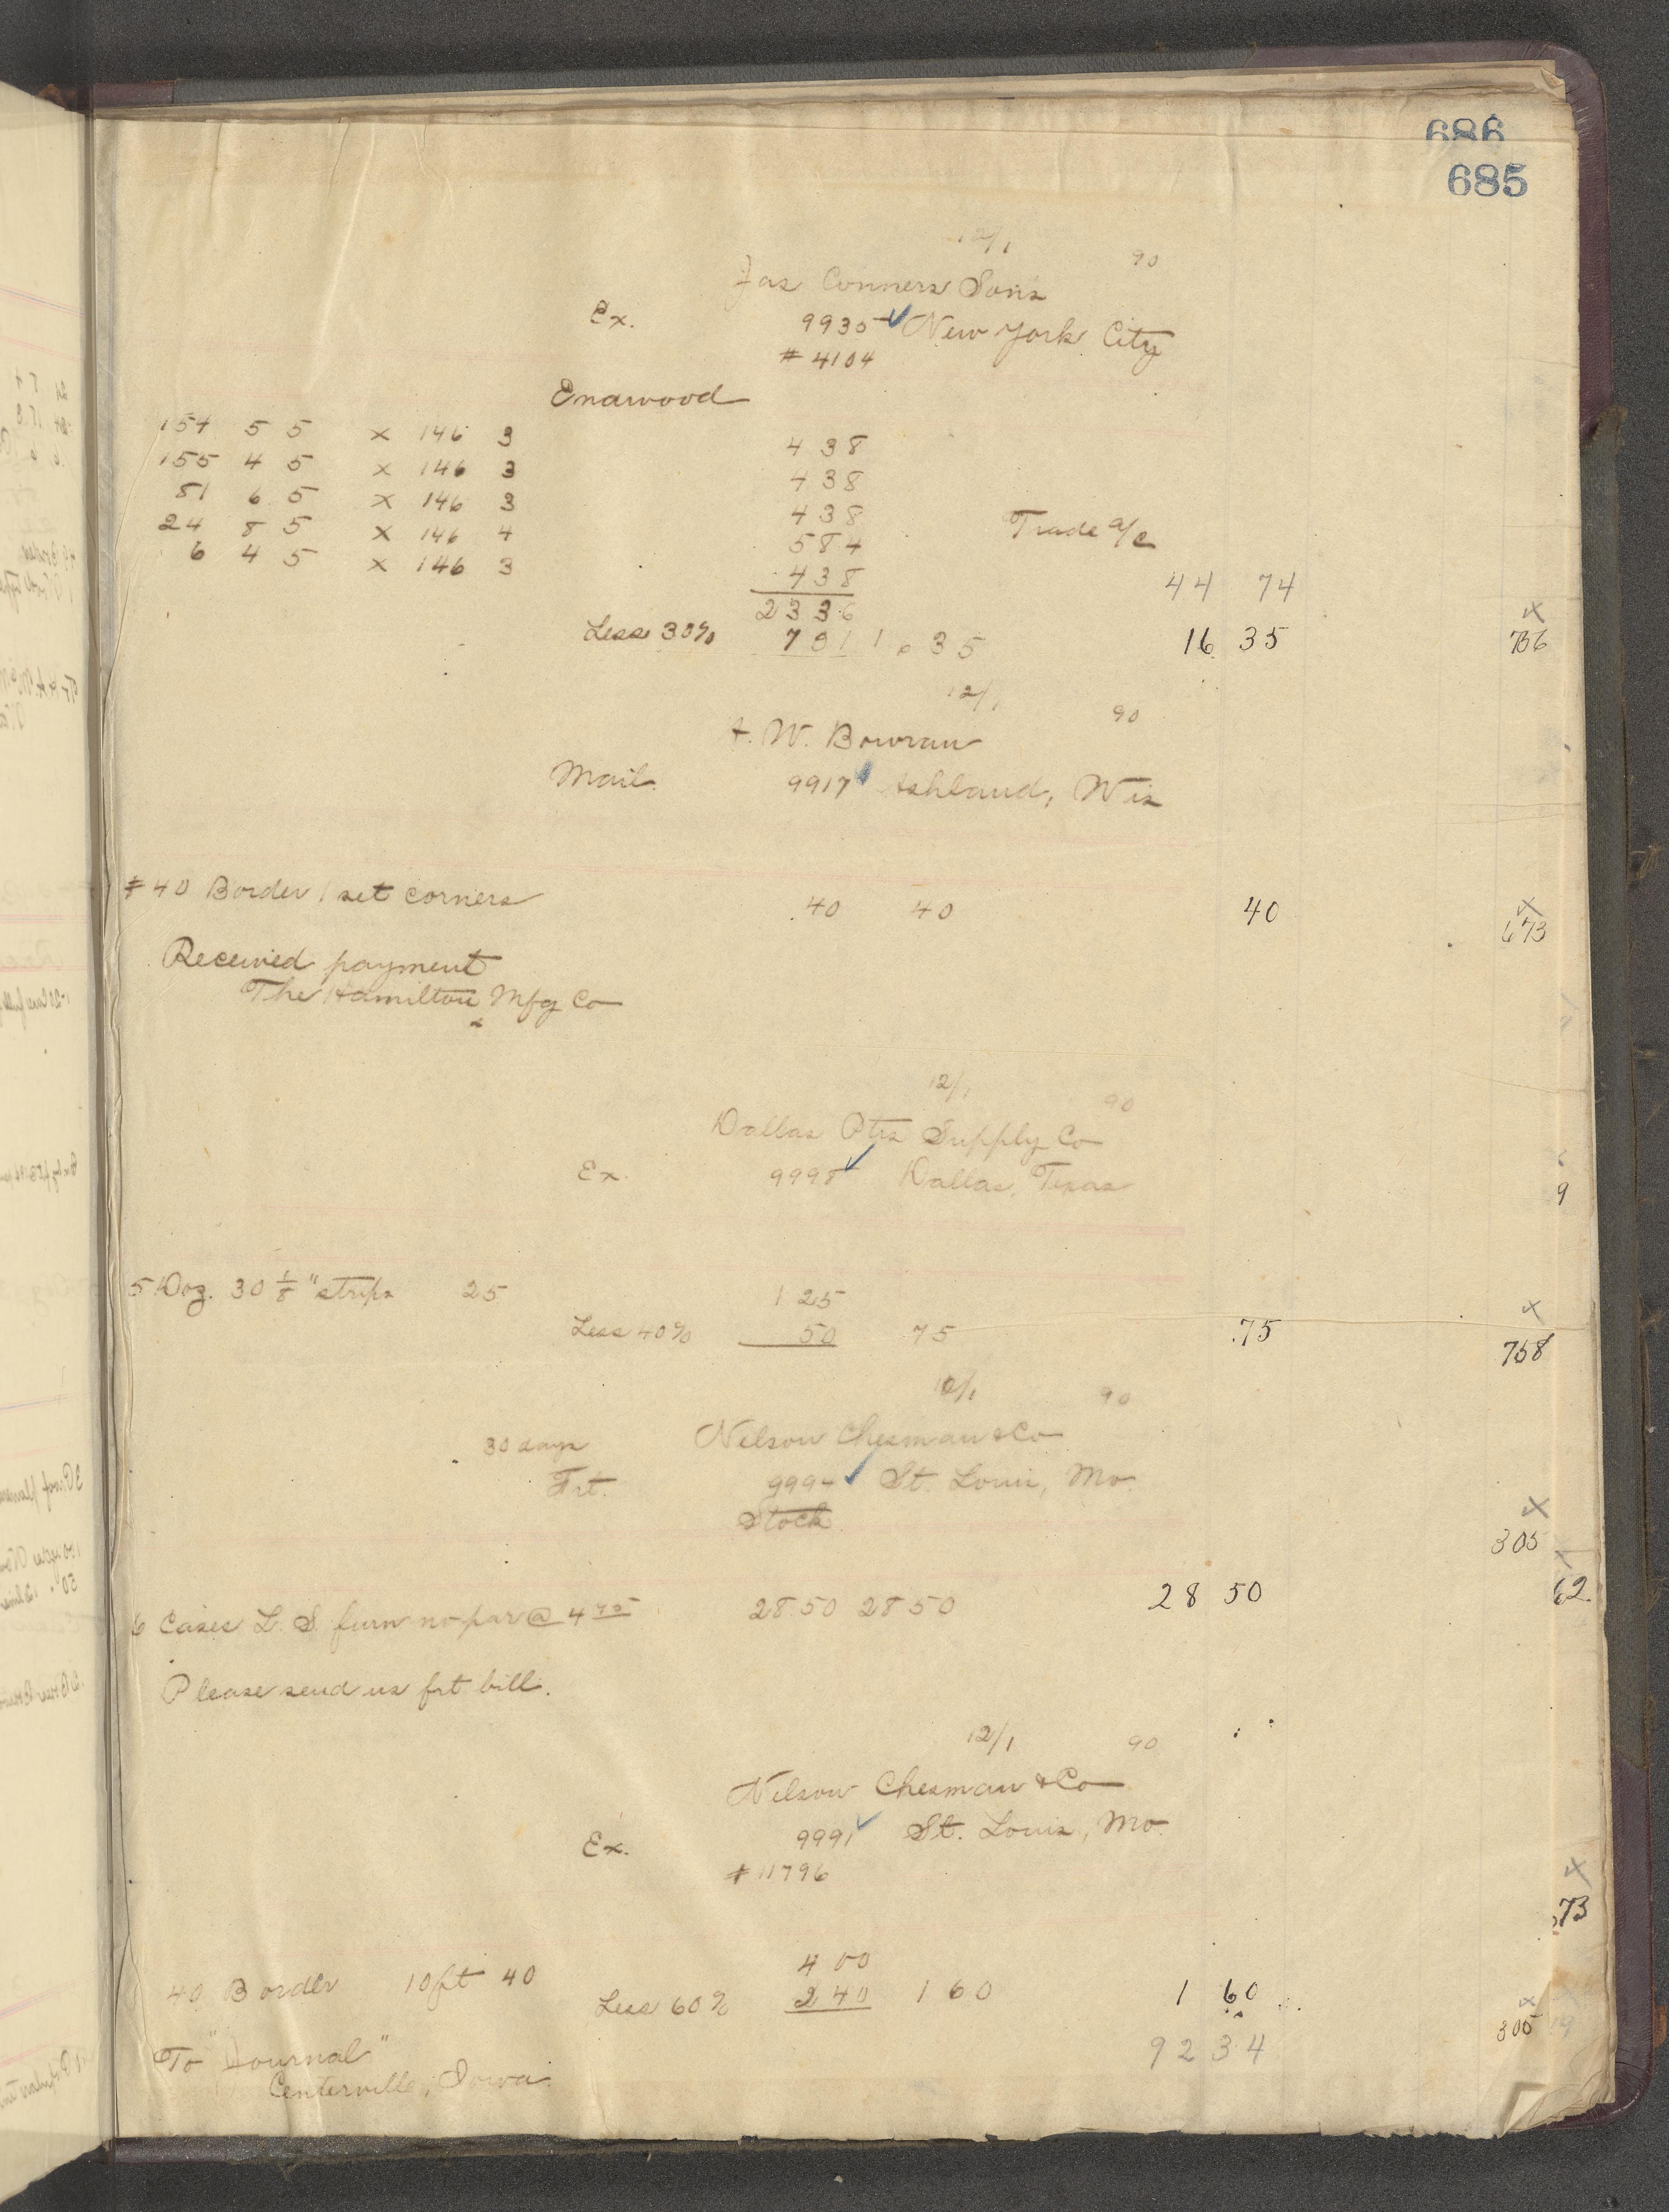 686
685
12/1 90
Jas Conners Sons
Ex. 9935 New York City
# 4104
Enawood
154 5 5 x 146 3 4 38
155 4 5 x 146 3 4 38
81 6 5 x 146 3 4 38
24 8 5 x 146 4 5 84 Trade a/c
6 4 5 x 146 3 4 38 44 74
23 36
Less 30% 7 01 16 35 16 35 x 736
12/1 90
A. W. Bowran
Mail. 9917 Ashland, Wis
# 40 Border 1 set corners 40 40 40 x 673
Received payment
The Hamilton Mfg Co
12/1 90
Dallas Ptrs Supply Co
Ex. 9998 Dallas, Texas
9
5 Doz. 30 1/8" strips 25 1 25
Less 40% 50 75 .75 x 758
12/1 90
30 days Nelson Chesman & Co
Frt. 999 St. Louis, Mo.
Stock
x 305
6 Cases L. S. furn no par @ 4 75 28.50 28 50 28 50 62
Please send us frt bill.
12/1 90
Nelson Chesman & Co
Ex. 9991 St. Louis, Mo.
# 11796
x 73
40 Border 10 ft 40 4 00
Less 60% 2 40 1 60 1 60 x 305
92 34
To "Journal"
Centerville, Iowa.